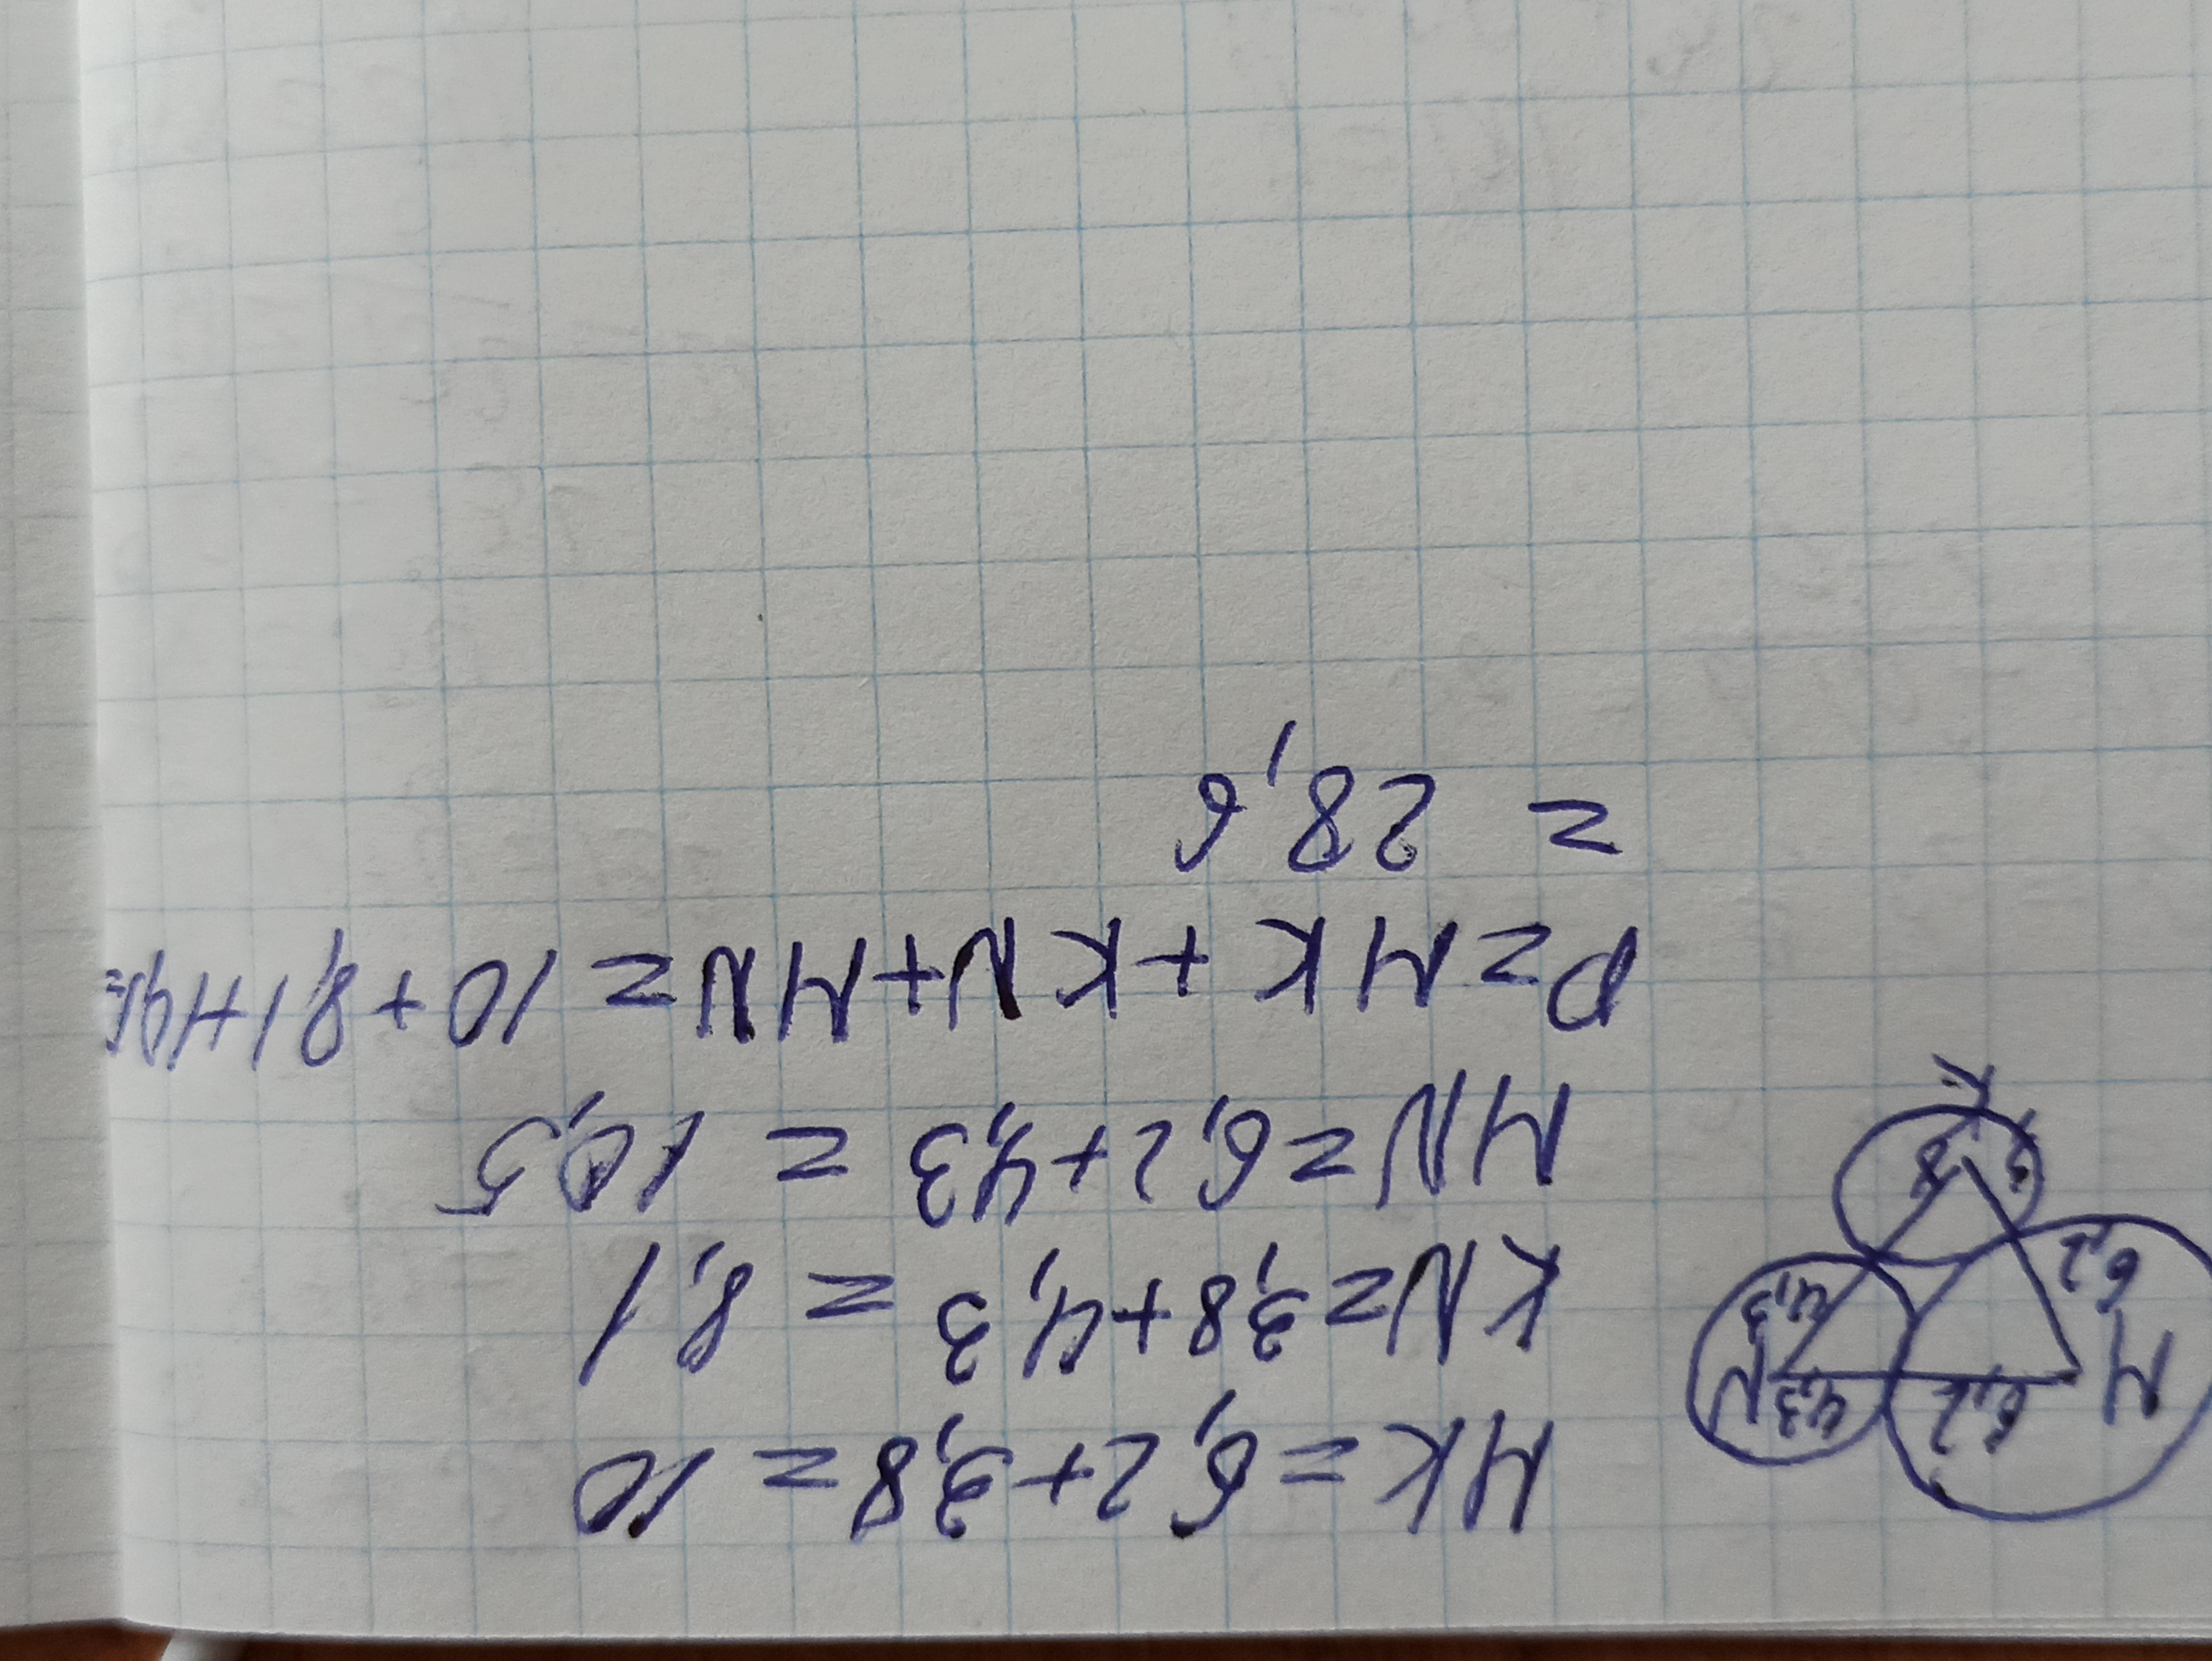 M 6,2 4,3 N
6,2 4,3
K
MK = 6,2+3,8 = 10
KN = 3,8+4,3 = 8,1
MN = 6,2+4,3 = 10,5
P = MK + KN + MN = 10+8,1+
= 28,6